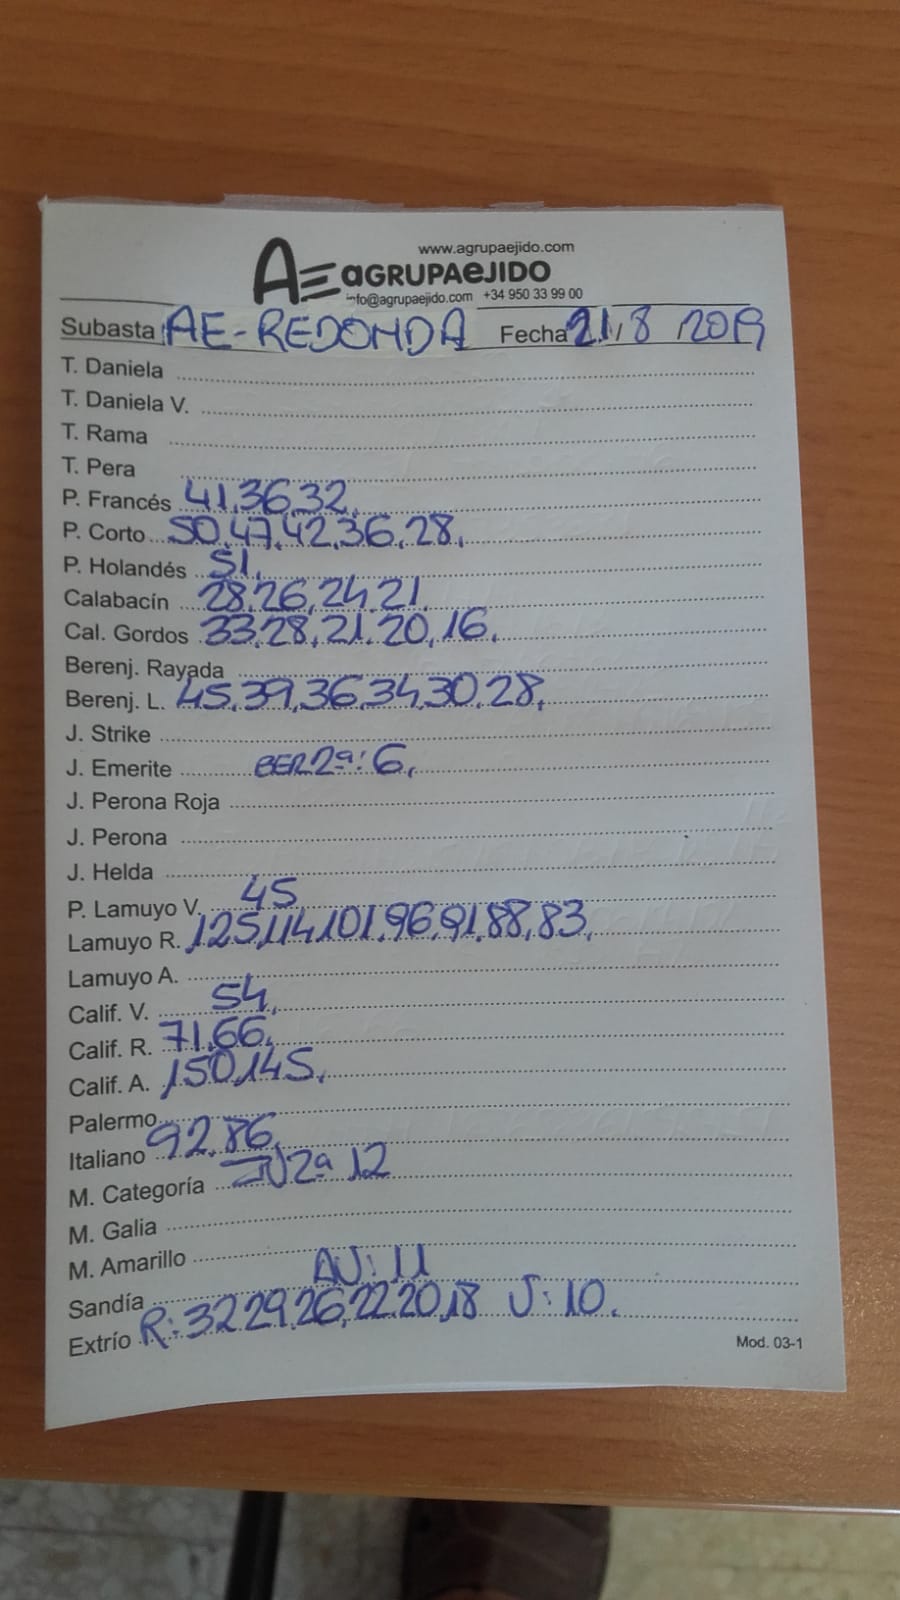 www.agrupaejido.com
AE aGRUPAeJIDO
info@agrupaejido.com +34 950 33 99 00
Subasta AE-REDONDA Fecha 21/8/2019
T. Daniela
T. Daniela V.
T. Rama
T. Pera
P. Francés 41,36,32,
P. Corto 50,47,42,36,28,
P. Holandés 51,
Calabacín 28,26,24,21,
Cal. Gordos 33,28,21,20,16,
Berenj. Rayada
Berenj. L. 45,39,36,34,30,28,
J. Strike
J. Emerite BER2ª: 6,
J. Perona Roja
J. Perona
J. Helda
P. Lamuyo V. 45
Lamuyo R. 125,114,101,96,91,88,83,
Lamuyo A.
Calif. V. 54,
Calif. R. 71,66,
Calif. A. 150,145,
Palermo
Italiano 92,86,
M. Categoría 2ª 12
M. Galia
M. Amarillo
Sandía : 11
Extrío R: 32,29,26,22,20,18 J: 10,
Mod. 03-1